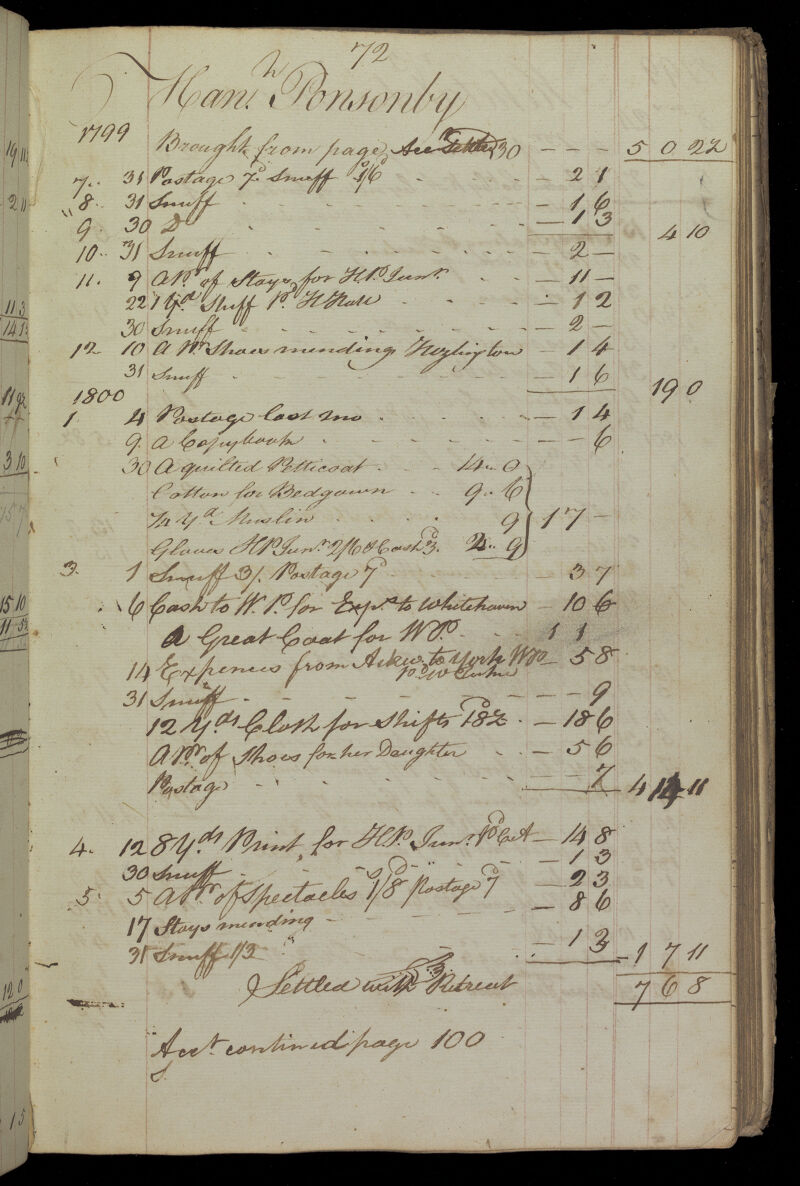 72
Han.h Ponsonby
1799
Brought from page 30 - - - 5 0 2½
7.. 31 Postage 7d Snuff 1/6d - 2 1
"8. 31 Snuff - 1 6
9. 30 Do - 1 3
4 10
10.. 31 Snuff - 2 -
11. 9 A Pr. of Stays for H.P. Junr. - 11 -
22 1 yd Stuff Pd. H - 1 2
30 Snuff - 2 -
12. 10 A Pr. Shoes mending - 1 4
31 Snuff - 1 6
19 0
1800
1 4 Postage last mo - 1 4
9 A Copybook - - 6
30 A quilted Petticoat 4.. 0
Cotton for Bedgown 9.. 6
¼ Yd Muslin 9
Gloves H.P. Junr. 2/6 & Cash 3d. 2.. 9 } 17 -
3. 1 Snuff 3/. Postage 7d - 3 7
6 Cash to W.P. for Exps. to Whitehaven - 10 6
A Great Coat for WP. 1 1
14 Expences from to York WP - 5 8
31 Snuff - - 9
12 Yds. Cloth for Shifts - 18 6
A Pr. of Shoes for her Daughter - 5 6
Postage - - 7
4 4 11
4. 12 8 Yds Print for H.P. Junr. - 14 8
30 Snuff - 1 3
5. 5 A Pr. of Spectacles 1/8 Postage 7d - 2 3
17 Stays mending - 8 6
31 Snuff 1/3 - 1 3
1 7 11
Settled with Retreat 7 6 8
Acct. continued page 100